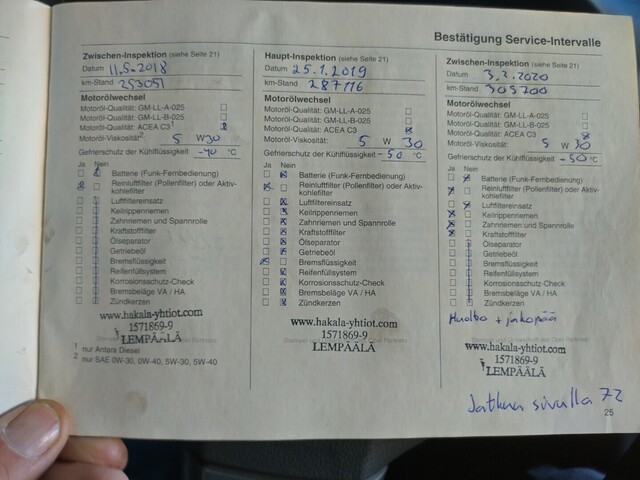 Bestätigung Service-Intervalle
Zwischen-Inspektion (siehe Seite 21)
Datum 11.5.2018
km-Stand 253051
Motorölwechsel
Motoröl-Qualität: GM-LL-A-025
Motoröl-Qualität: GM-LL-B-025
Motoröl-Qualität: ACEA C3¹
Motoröl-Viskosität²: 5 W 30
Gefrierschutz der Kühlflüssigkeit -40 °C
Ja Nein
Batterie (Funk-Fernbedienung)
Reinluftfilter (Pollenfilter) oder Aktiv-
kohlefilter
Luftfiltereinsatz
Keilrippenriemen
Zahnriemen und Spannrolle
Kraftstofffilter
Ölseparator
Getriebeöl
Bremsflüssigkeit
Reifenfüllsystem
Korrosionsschutz-Check
Bremsbeläge VA / HA
Zündkerzen
www.hakala-yhtiot.com
1571869-9
LEMPÄÄLÄ
1 nur Antara Diesel
2 nur SAE 0W-30, 0W-40, 5W-30, 5W-40
Haupt-Inspektion (siehe Seite 21)
Datum 25.1.2019
km-Stand 287116
Motorölwechsel
Motoröl-Qualität: GM-LL-A-025
Motoröl-Qualität: GM-LL-B-025
Motoröl-Qualität: ACEA C3
Motoröl-Viskosität: 5 W 30
Gefrierschutz der Kühlflüssigkeit -50 °C
Ja Nein
Batterie (Funk-Fernbedienung)
Reinluftfilter (Pollenfilter) oder Aktiv-
kohlefilter
Luftfiltereinsatz
Keilrippenriemen
Zahnriemen und Spannrolle
Kraftstofffilter
Ölseparator
Getriebeöl
Bremsflüssigkeit
Reifenfüllsystem
Korrosionsschutz-Check
Bremsbeläge VA / HA
Zündkerzen
www.hakala-yhtiot.com
1571869-9
LEMPÄÄLÄ
Zwischen-Inspektion (siehe Seite 21)
Datum 3.2.2020
km-Stand 305700
Motorölwechsel
Motoröl-Qualität: GM-LL-A-025
Motoröl-Qualität: GM-LL-B-025
Motoröl-Qualität: ACEA C3
Motoröl-Viskosität: 5 W 30
Gefrierschutz der Kühlflüssigkeit -50 °C
Ja Nein
Batterie (Funk-Fernbedienung)
Reinluftfilter (Pollenfilter) oder Aktiv-
kohlefilter
Luftfiltereinsatz
Keilrippenriemen
Zahnriemen und Spannrolle
Kraftstofffilter
Ölseparator
Getriebeöl
Bremsflüssigkeit
Reifenfüllsystem
Korrosionsschutz-Check
Bremsbeläge VA / HA
Zündkerzen
Huolto + jakopää
www.hakala-yhtiot.com
1571869-9
LEMPÄÄLÄ
Jatkuu sivulla 72
25